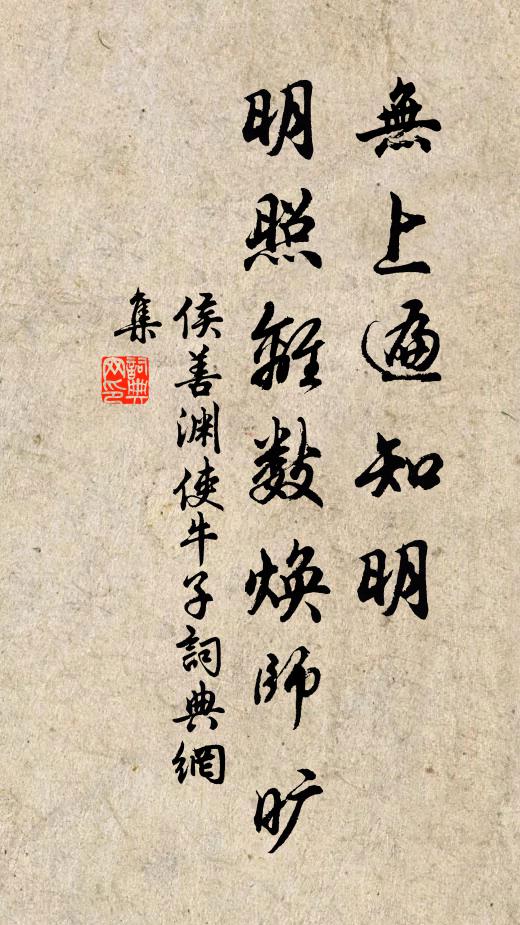 無上遍知明
明照離數煥師旷
侯善渊使牛子詞典網
集
詞典
网印